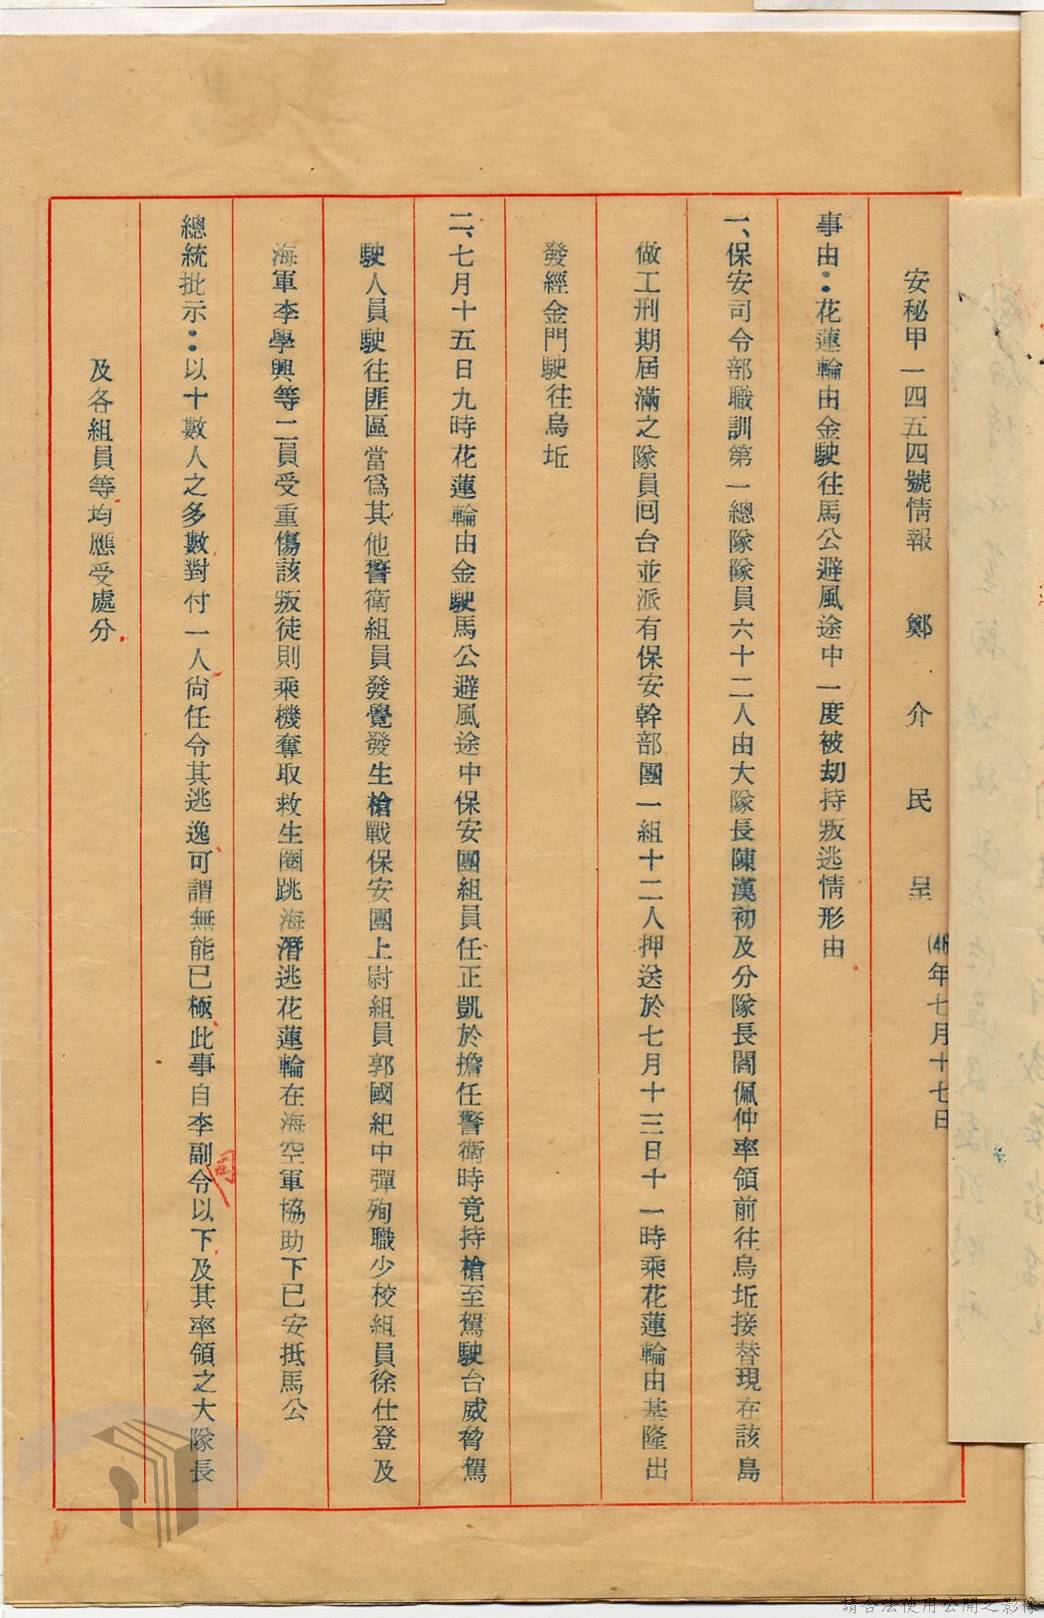 安秘甲一四五四號情報　鄭介民　呈　(46年七月十七日
事由：花蓮輪由金駛往馬公避風途中一度被刧持叛逃情形由
一、保安司令部職訓第一總隊隊員六十二人由大隊長陳漢礽及分隊長閻佩仲率領前往烏坵接替現在該島
做工刑期屆滿之隊員囘台並派有保安幹部團一組十二人押送於七月十三日十一時乘花蓮輪由基隆出
發經金門駛往烏坵
二、七月十五日九時花蓮輪由金駛馬公避風途中保安團組員任正凱於擔任警衛時竟持槍至駕駛台威脅駕
駛人員駛往匪區當爲其他警衛組員發覺發生槍戰保安團上尉組員郭國紀中彈殉職少校組員徐仕登及
海軍李學興等二員受重傷該叛徒則乘機奪取救生圈跳海潛逃花蓮輪在海空軍協助下已安抵馬公
總統批示：以十數人之多數對付一人尙任令其逃逸可謂無能已極此事自李副司令以下及其率領之大隊長
及各組員等均應受處分
請合法使用公開之影像